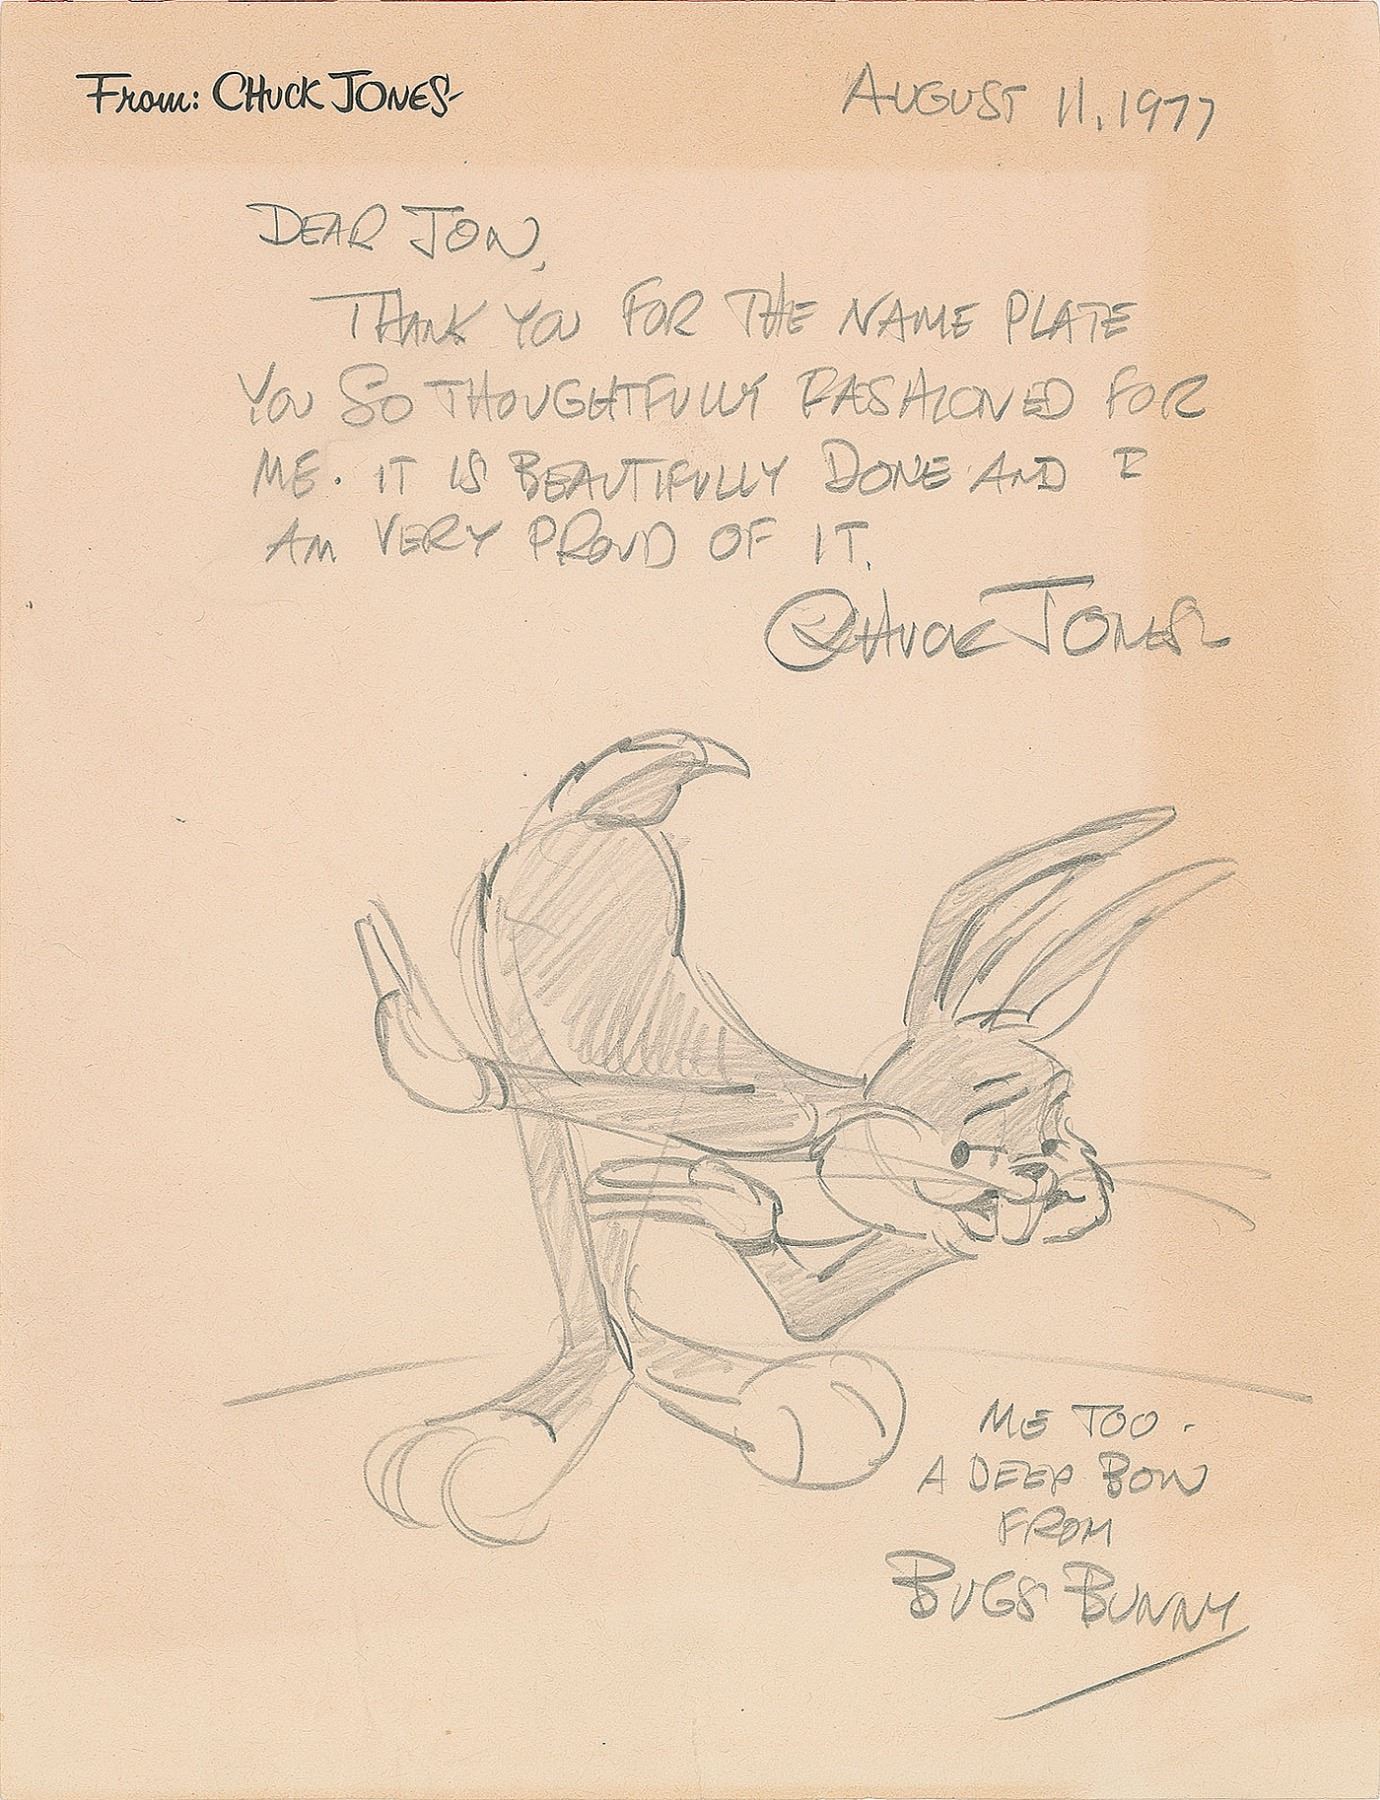 From: CHUCK JONES
AUGUST 11, 1977
DEAR JON,
THANK YOU FOR THE NAME PLATE
YOU SO THOUGHTFULLY FASHIONED FOR
ME. IT IS BEAUTIFULLY DONE AND I
AM VERY PROUD OF IT.
CHUCK JONES
ME TOO.
A DEEP BOW
FROM
BUGS BUNNY